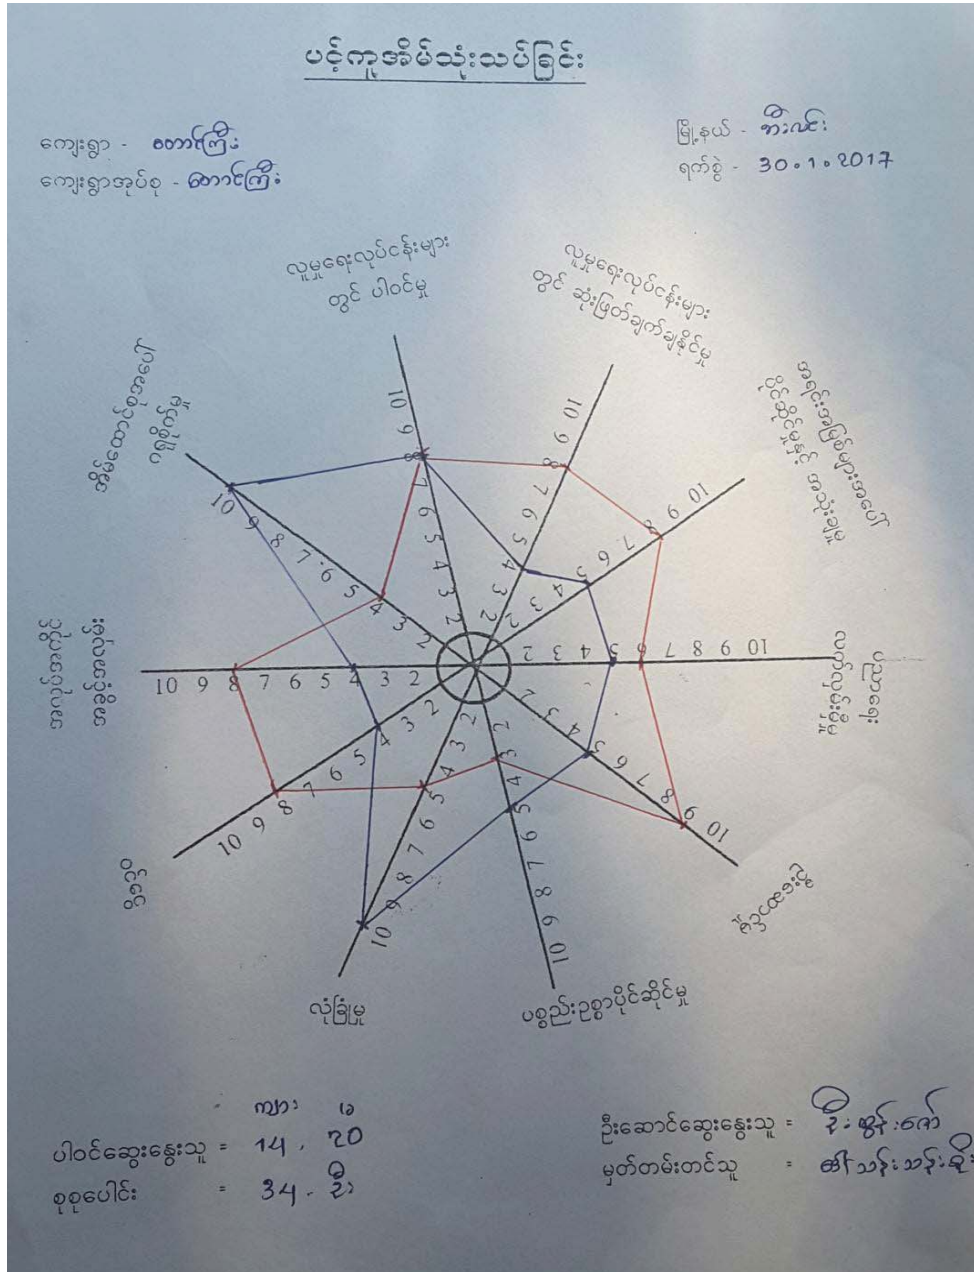 ပင့်ကူအိမ်သုံးသပ်ခြင်း
ကျေးရွာ - တောင်ကြီး
ကျေးရွာအုပ်စု - တောင်ကြီး
မြို့နယ် - ဘီးလင်း
ရက်စွဲ - 30.1.2017
လူမှုရေးလုပ်ငန်းများ
တွင် ပါဝင်မှု
လူမှုရေးလုပ်ငန်းများ
တွင် ဆုံးဖြတ်ချက်ချနိုင်မှု
အရင်းအမြစ်များအပေါ်
ပိုင်ဆိုင်မှုနှင့် အသုံးချမှု
ပညာရေး
ပစ္စည်းဥစ္စာပိုင်ဆိုင်မှု
လုံခြုံမှု
ဝင်ငွေ
အလုပ်အကိုင်
အခွင့်အလမ်း
10 9 8 7 6 5 4 3 2
10 9 8 7 6 5 4 3 2
10 9 8 7 6 5 4 3 2
10 9 8 7 6 5 4 3 2
10 9 8 7 6 5 4 3 2
10 9 8 7 6 5 4 3 2
10 9 8 7 6 5 4 3 2
10 9 8 7 6 5 4 3 2
10 9 8 7 6 5 4 3 2
10 9 8 7 6 5 4 3 2
ကျား မ
ပါဝင်ဆွေးနွေးသူ = 14 . 20
စုစုပေါင်း = 34 . ဦး
ဦးဆောင်ဆွေးနွေးသူ = ဦးထွန်းဇော်
မှတ်တမ်းတင်သူ = ဒေါ်သန်းသန်းစိုး